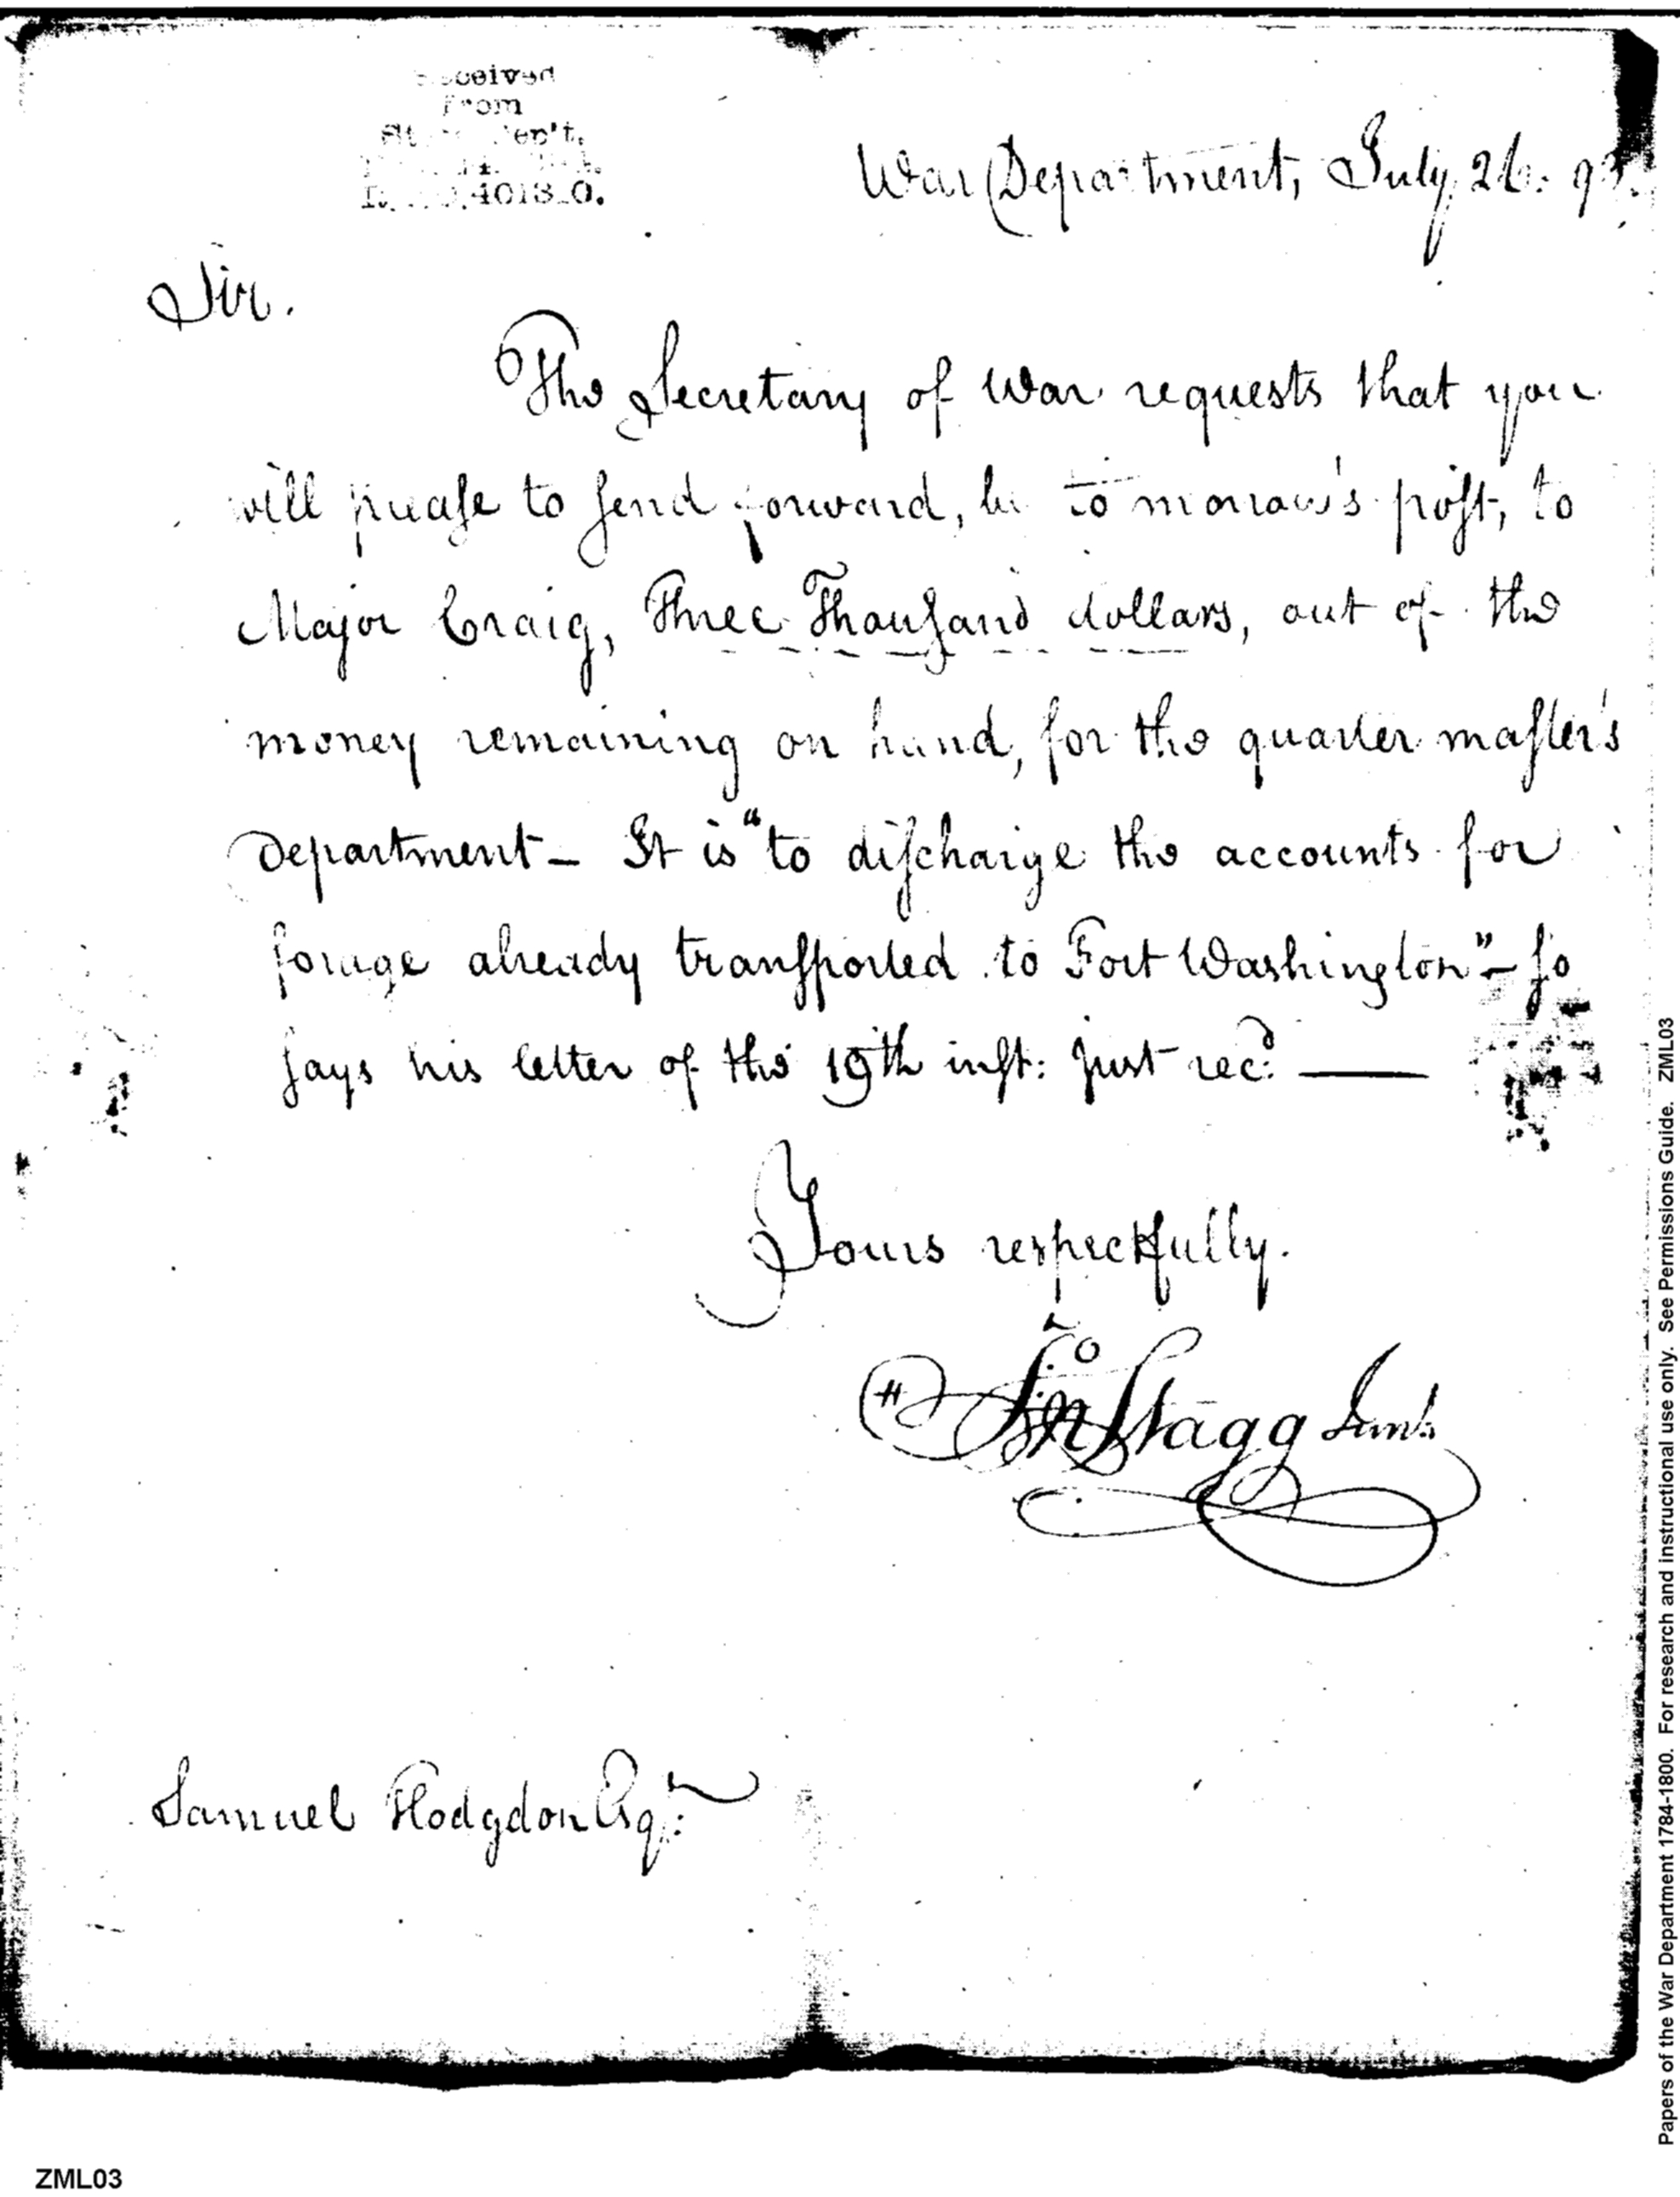 Received
From
Dep't.
4013 0.
War Department, July 26: 93.
Sir.
The Secretary of War requests that you
will please to send forward, by to morrow's post, to
Major Craig, Three Thousand dollars, out of the
money remaining on hand, for the quarter master's
Department — It is "to discharge the accounts for
forage already transported to Fort Washington" — so
says his letter of the 19th inst: just rec.d
Yours respectfully.
Jn.o Stagg Jun.r
Samuel Hodgdon Esq.r
Papers of the War Department 1784-1800. For research and instructional use only. See Permissions Guide. ZML03
ZML03